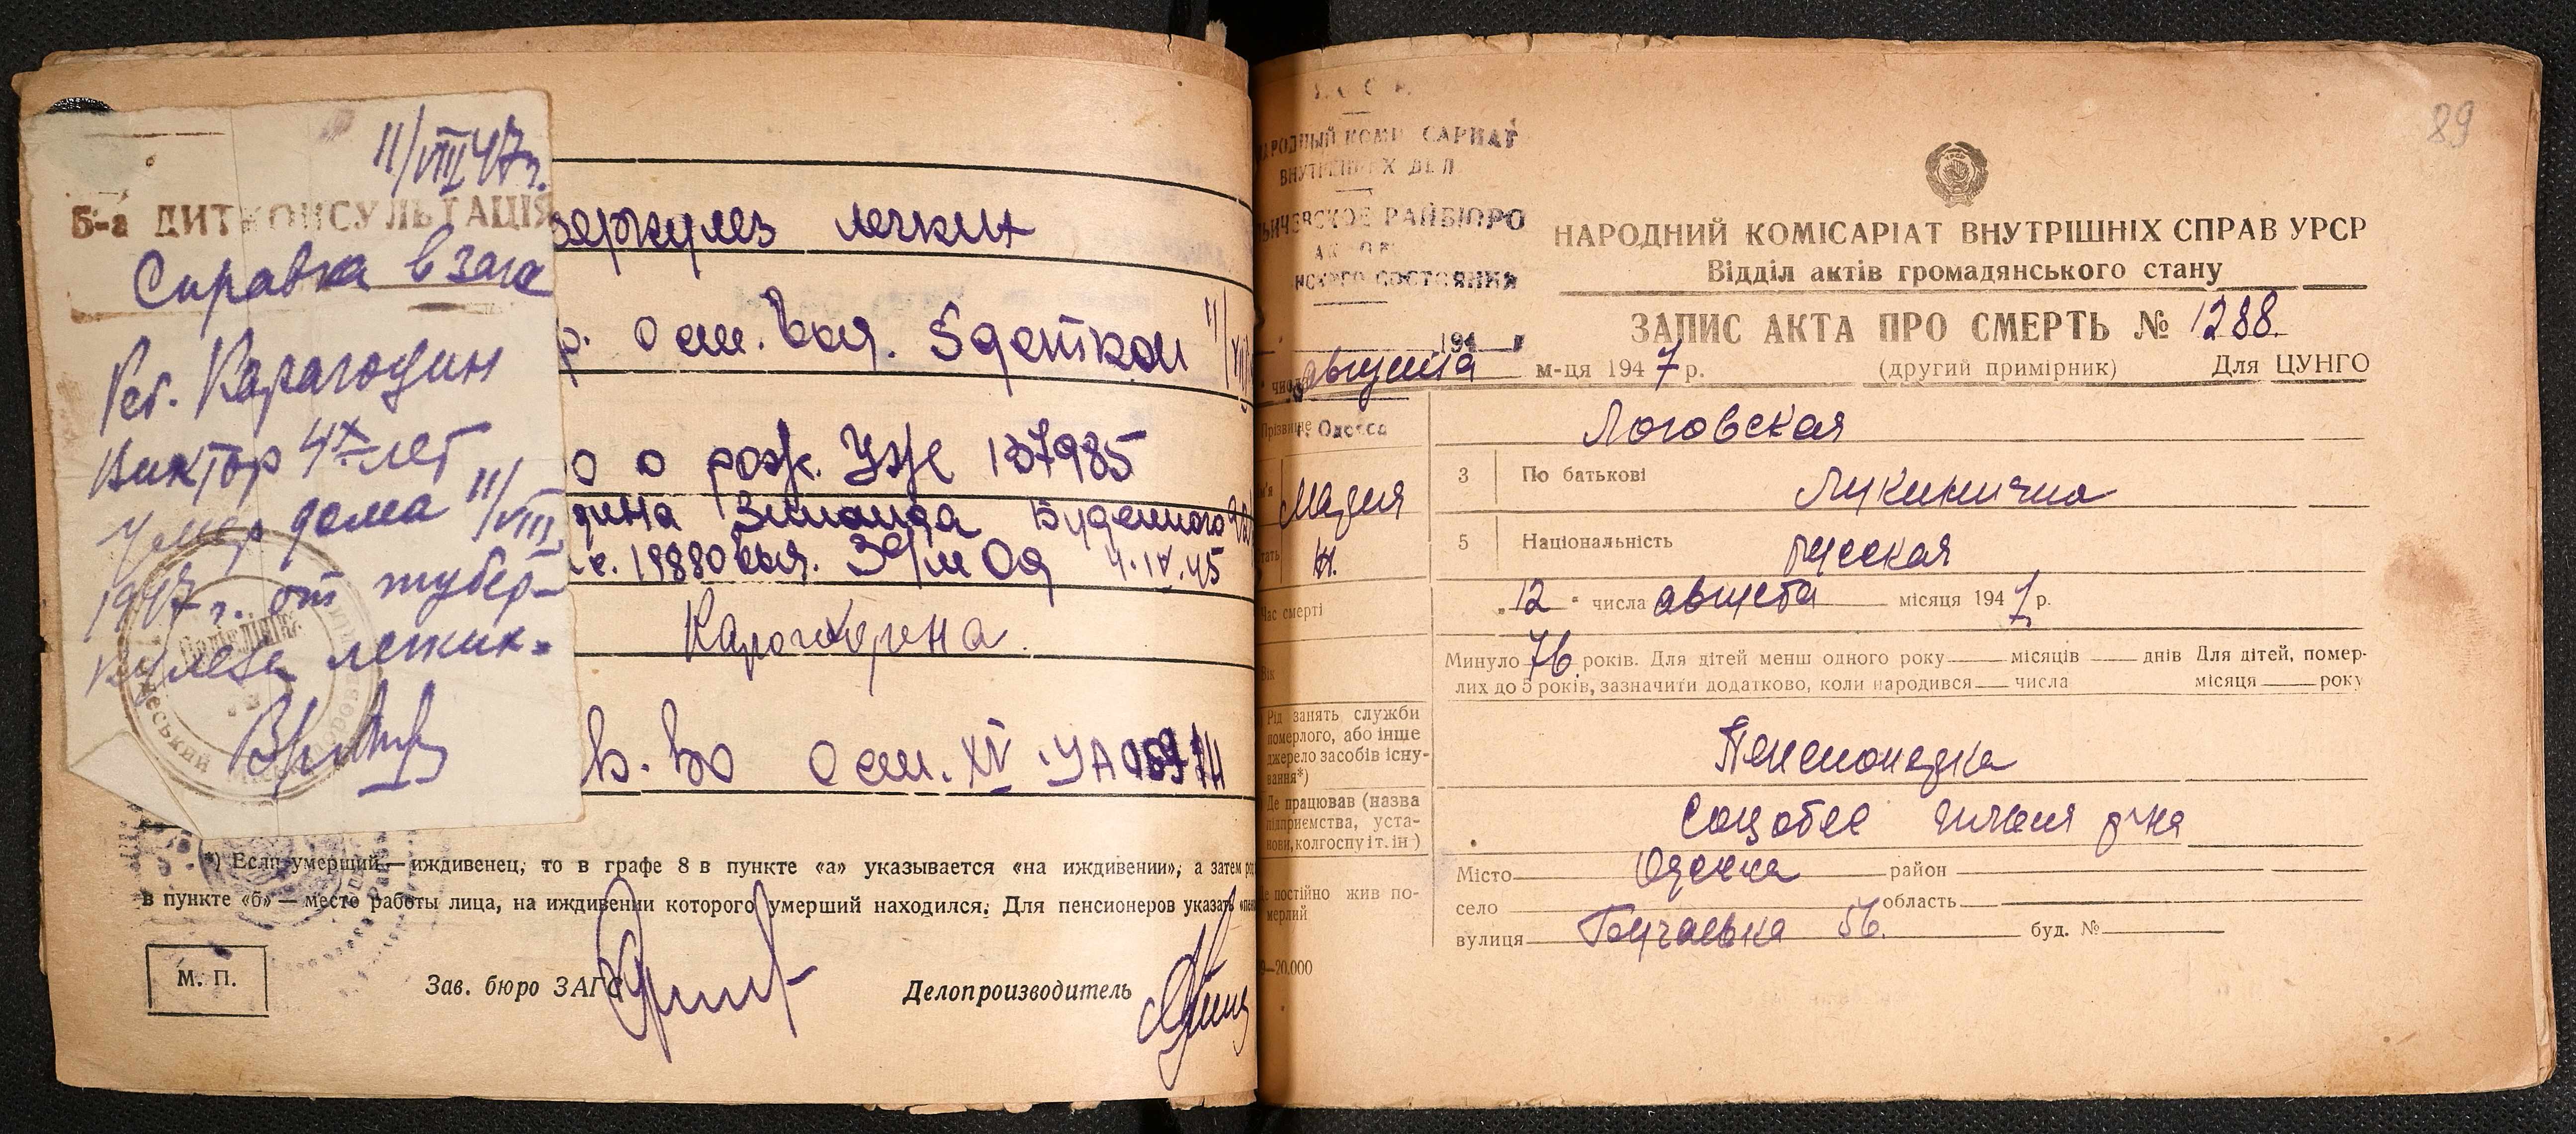 11/VIII 47г.
Б-а ДИТКОНСУЛЬТАЦІЯ
Справка в загс
Реб. Карагодин
Виктор 4х лет
умер дома 11/VIII
1947 г. от тубер-
кулеза легких.
беркулез легких
о см. выд. 5 деткон 11/VIII
о о рож. УЖ 137985
дина Зинаида Буденного
19880 выд. 3 о/м Од 4.IV.45
Карагодина.
В. во о см. XV УА
*) Если умерший — иждивенец, то в графе 8 в пункте «а» указывается «на иждивении», а затем
в пункте «б» — место работы лица, на иждивении которого умерший находился. Для пенсионеров указать
М. П.
Зав. бюро ЗАГС
Делопроизводитель
89
У. С С Р.
НАРОДНЫЙ КОМИССАРИАТ
ВНУТРЕННИХ ДЕЛ
ИЧЕВСКОЕ РАЙБЮРО
АКТОВ
НСКОГО СОСТОЯНИЯ
194 г
г. Одесса
НАРОДНИЙ КОМІСАРІАТ ВНУТРІШНІХ СПРАВ УРСР
Відділ актів громадянського стану
ЗАПИС АКТА ПРО СМЕРТЬ № 1288.
" числа августа м-ця 1947 р. (другий примірник) Для ЦУНГО
Прізвище Логовская
м'я Мария 3 По батькові Лукинична
тать Ж. 5 Національність русская
Час смерті „12" числа августа місяця 1947 р.
Вік Минуло 76 років. Для дітей менш одного року місяців днів Для дітей, помер-
лих до 5 років, зазначити додатково, коли народився числа місяця року
Рід занять, служби
померлого, або інше
джерело засобів існу-
вання*)
Пенсионерка
Де працював (назва
підприємства, уста-
нови, колгоспу і т. ін)
Соцобес Ильич р-на
Де постійно жив по-
мерлий
Місто Одесса район
село область
вулиця 56. буд. №
9—20.000